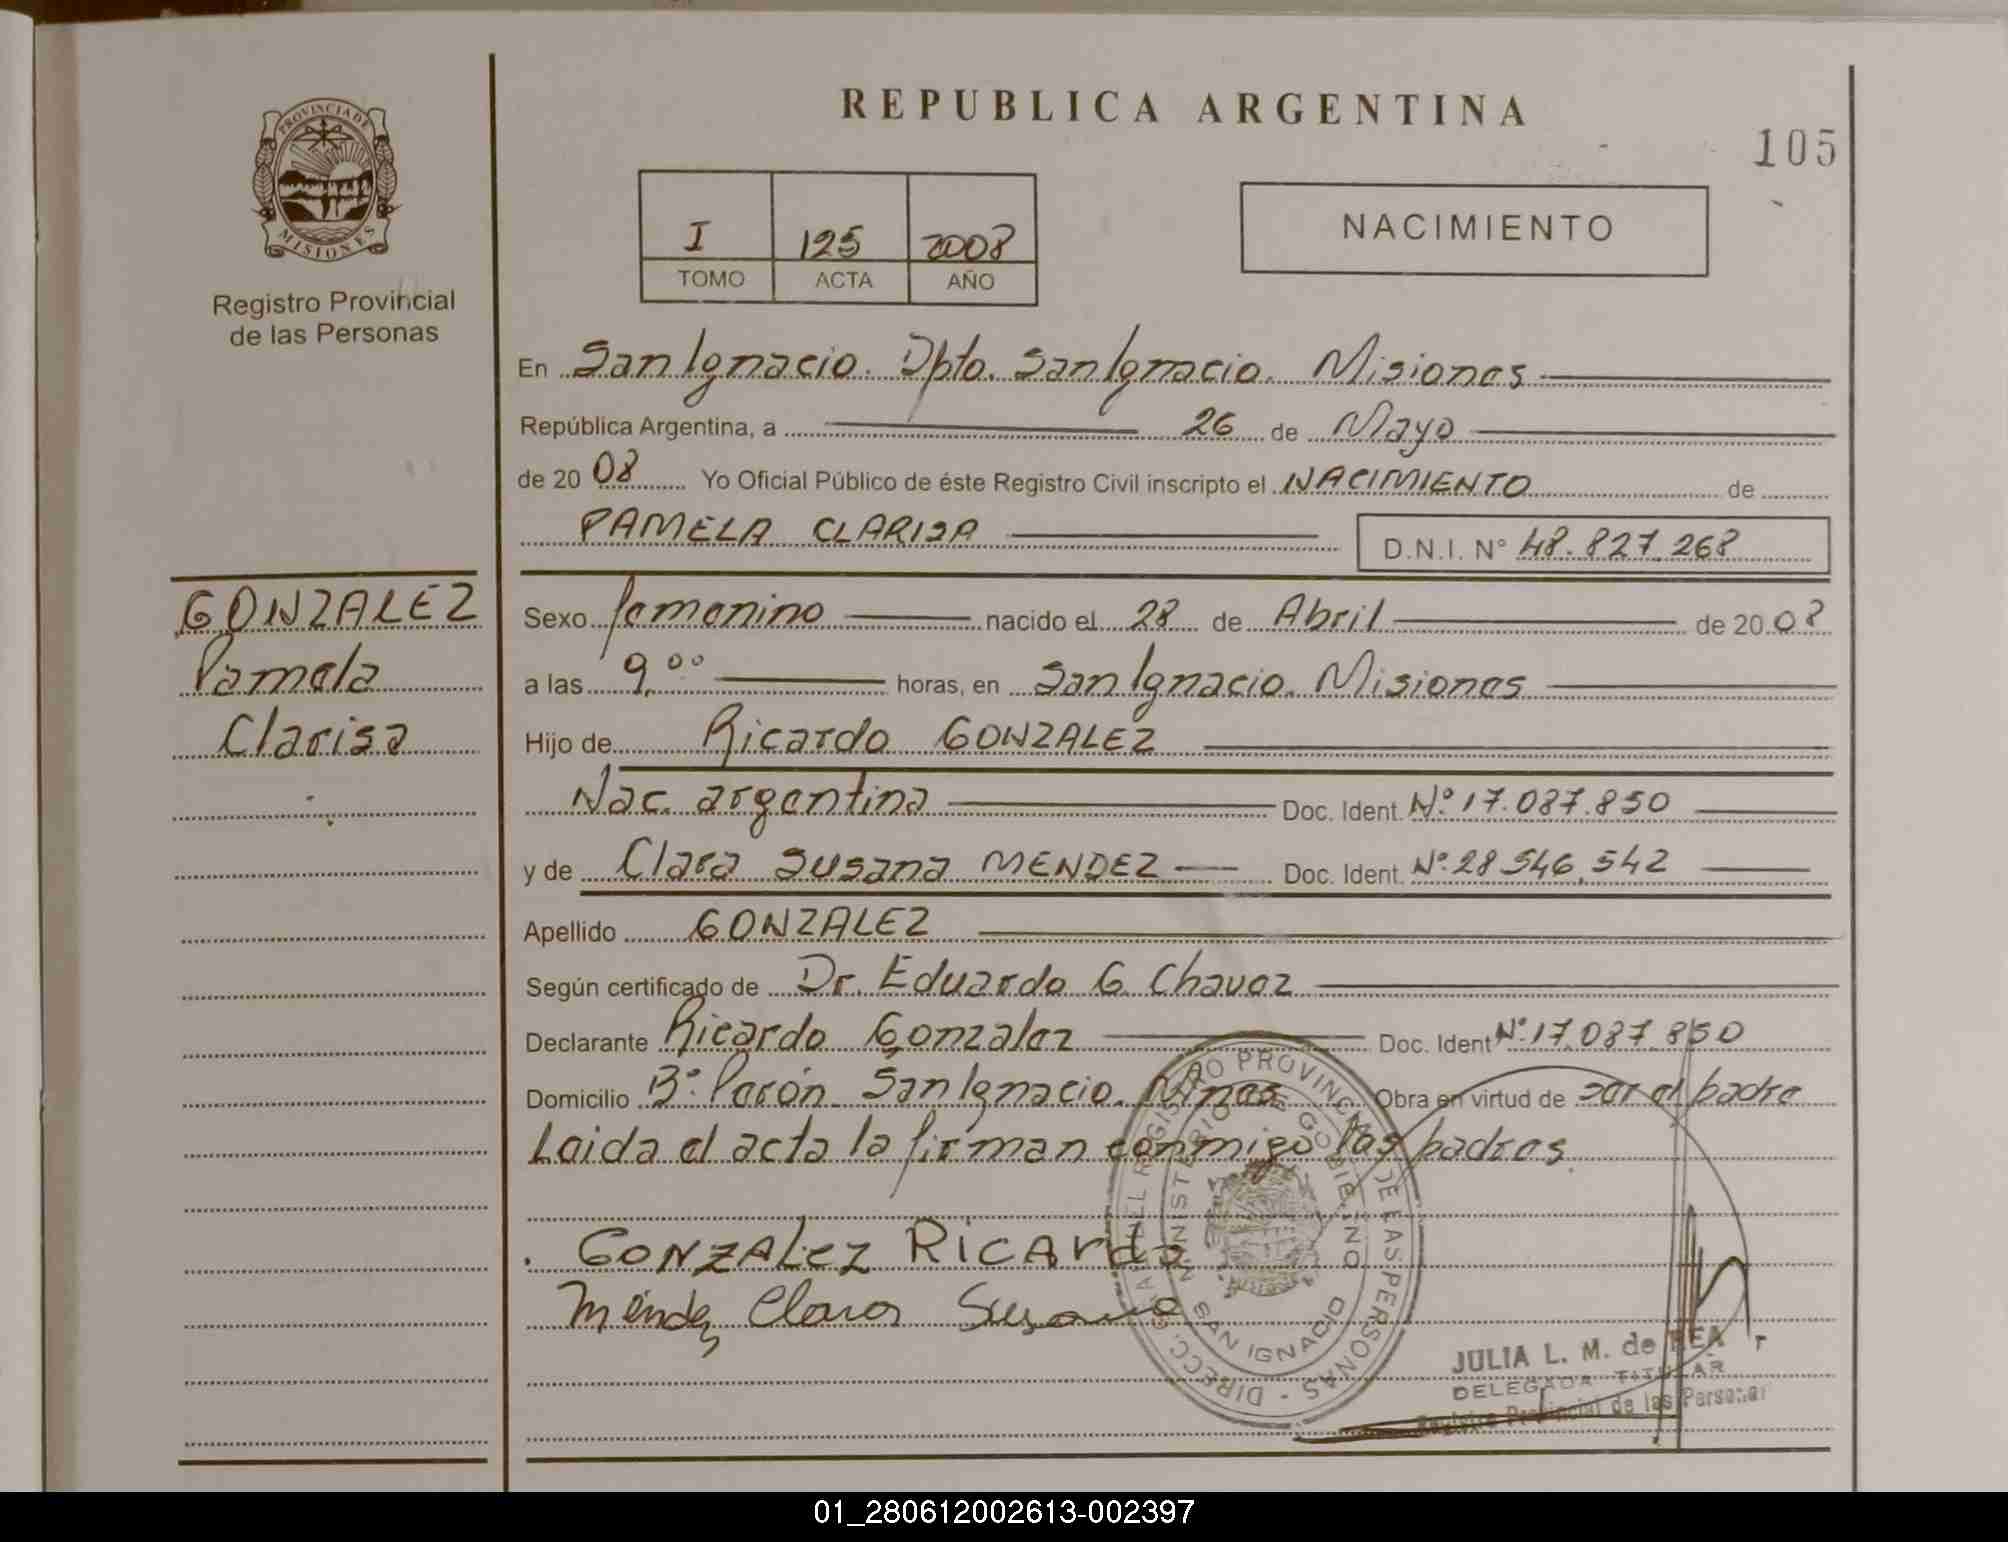 PROVINCIA DE
MISIONES
Registro Provincial
de las Personas
GONZALEZ
Pamela
Clarisa
REPUBLICA ARGENTINA
105
I 125 2008
TOMO ACTA AÑO
NACIMIENTO
En San Ignacio. Dpto. San Ignacio. Misiones
República Argentina, a 26 de Mayo
de 20 08 Yo Oficial Público de éste Registro Civil inscripto el NACIMIENTO de
PAMELA CLARISA D.N.I. N° 48.827.268
Sexo femenino nacido el 28 de Abril de 20 08
a las 9.00 horas, en San Ignacio. Misiones
Hijo de Ricardo GONZALEZ
Nac. argentina Doc. Ident. N° 17.087.850
y de Clara Susana MENDEZ Doc. Ident. N° 28.546.542
Apellido GONZALEZ
Según certificado de Dr. Eduardo G. Chavez
Declarante Ricardo Gonzalez Doc. Ident N° 17.087.850
Domicilio B° Perón San Ignacio. Mnes Obra en virtud de ser el padre
Leida el acta la firman conmigo los padres.
GONZALEZ RICARDO
Méndez Clara Susana
DIRECC. GRAL. DEL REGISTRO PROVINCIAL DE LAS PERSONAS -
MINISTERIO DE GOBIERNO
SAN IGNACIO
JULIA L. M. de REA
DELEGADA TITULAR
Registro Provincial de las Personas
01_280612002613-002397